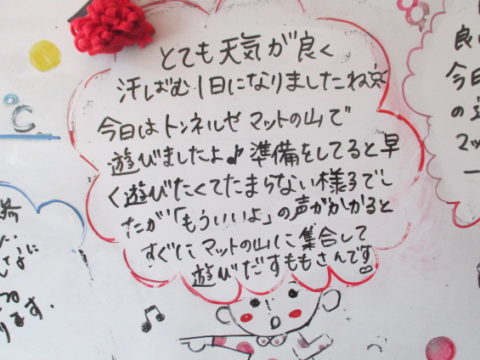 とても天気が良く
汗ばむ1日になりましたね☀
今日はトンネルやマットの山で
遊びましたよ♪準備をしてると早
く遊びたくてたまらない様子でし
たが「もういいよ」の声がかかると
すぐにマットの山に集合して
遊びだすももさんです
℃
良
今日
の
マッ